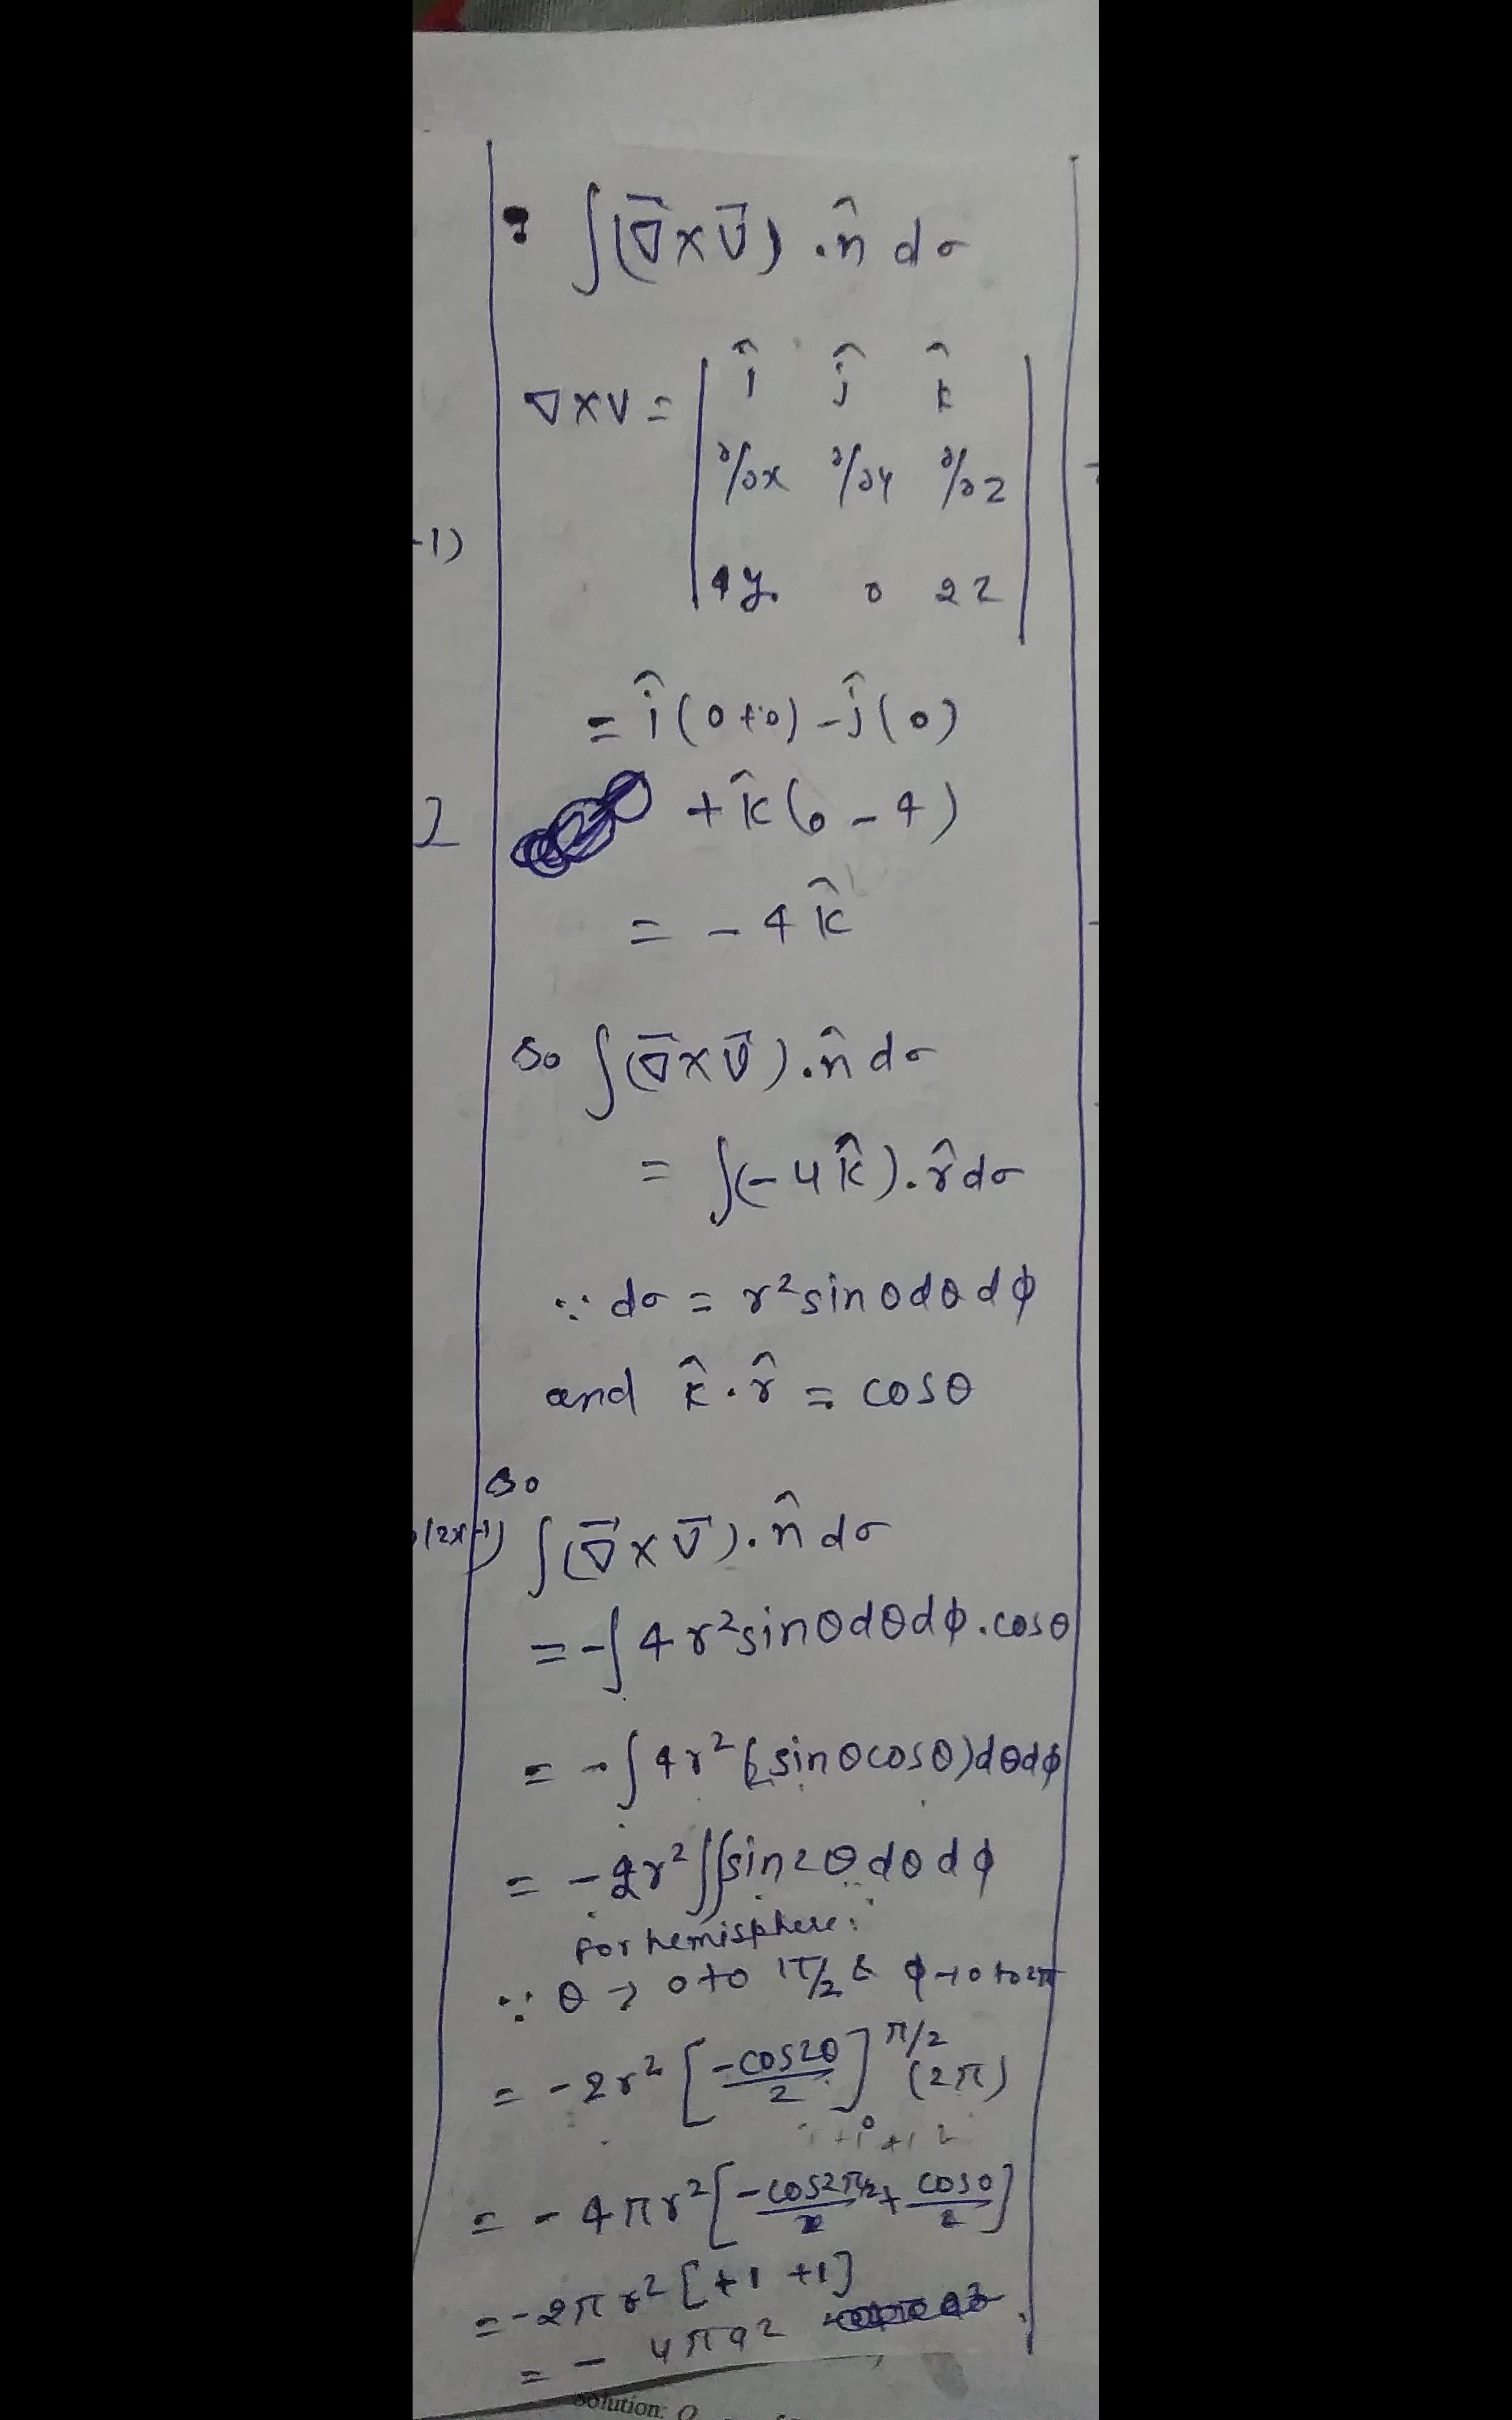 ∫(∇̄×v̄).n̂ dσ
∇×v = | î ĵ k̂ |
| ∂/∂x ∂/∂y ∂/∂z |
-1)
| 4y 0 2z |
= î(0+0) - ĵ(0)
+ k̂(0-4)
2
= -4k̂
So ∫(∇̄×v̄).n̂ dσ
= ∫(-4k̂).r̂ dσ
∵ dσ = r² sinθ dθ dϕ
and k̂.r̂ = cosθ
So
(2x-1)
∫(∇̄×v̄).n̂ dσ
= -∫4r² sinθ dθ dϕ. cosθ
= -∫4r² (sinθ cosθ) dθ dϕ
= -2r² ∬ sin2θ dθ dϕ
for hemisphere:
∵ θ → 0 to π/2 & ϕ → 0 to 2π
= -2r² [-cos2θ/2]₀^π/2 (2π)
= -4πr² [-cos2π/2/2 + cos0/2]
= -2πr² [+1 +1]
= -4πa²
Solution: